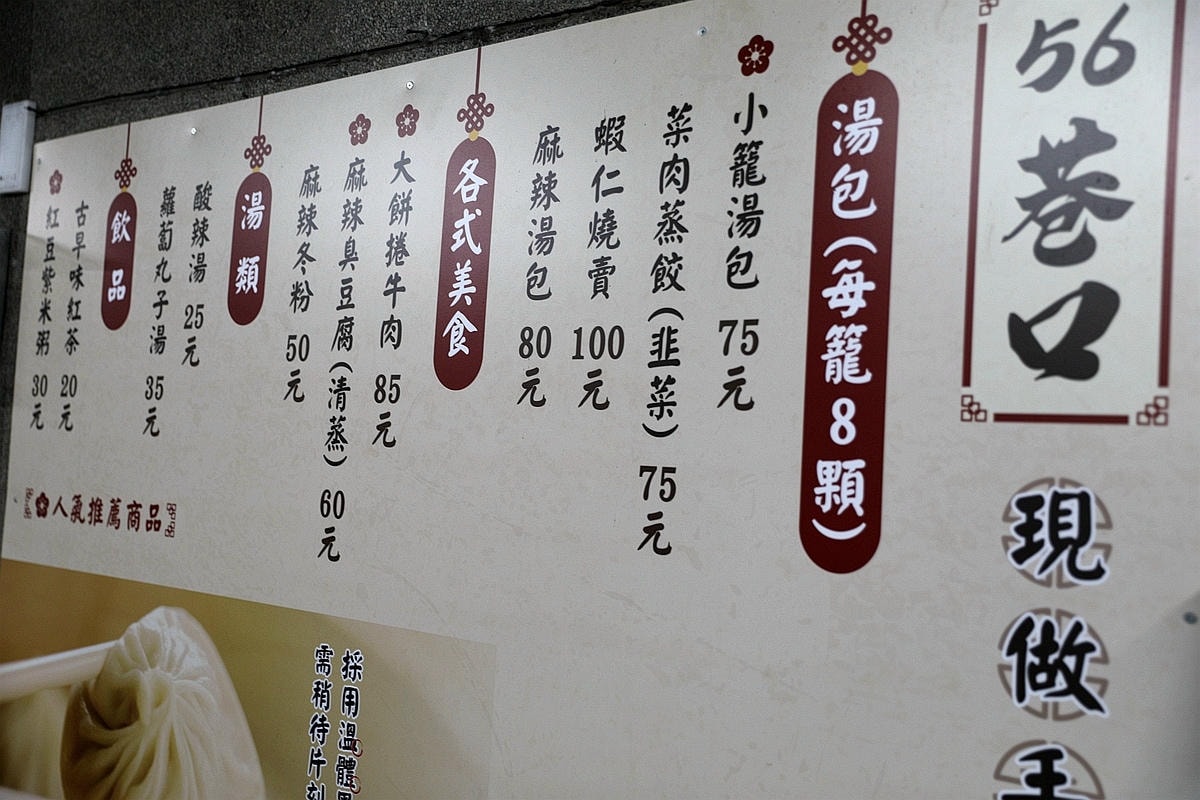 56巷口
現做手
湯包(每籠8顆)
小籠湯包 75元
菜肉蒸餃(韭菜) 75元
蝦仁燒賣 100元
麻辣湯包 80元
各式美食
大餅捲牛肉 85元
麻辣臭豆腐(清蒸) 60元
麻辣冬粉 50元
湯類
酸辣湯 25元
蘿蔔丸子湯 35元
飲品
古早味紅茶 20元
紅豆紫米粥 30元
人氣推薦商品
採用溫體
需稍待片刻